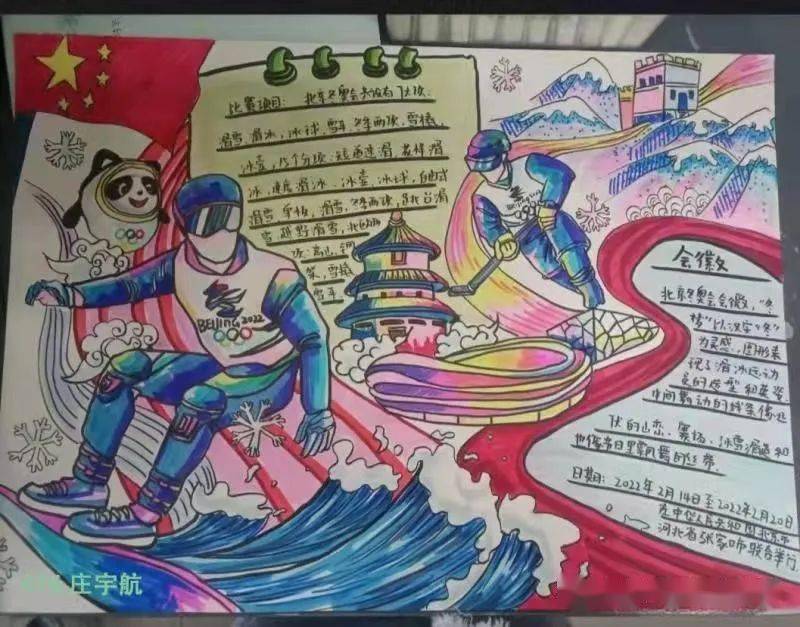 比赛项目: 北京冬奥会共设有7大项:
滑雪,滑冰,冰球,雪车,冬季两项,雪橇,
冰壶,15个分项:短道速滑,花样滑
冰,速度滑冰,冰壶,冰球,自由式
滑雪,单板,滑雪,冬季两项,跳台滑
雪,越野滑雪,北欧两
项,高山,钢
架,雪橇
雪车
BEIJING 2022
会徽
北京冬奥会会徽,"冬
梦"以汉字"冬"
为灵感,图形表
现了滑冰运动
员的造型和英姿
中间舞动的线条像起
伏的山峦、赛场、冰雪滑道和
日期: 2022年2月14日至2022年2月20日
在中华人民共和国北京市
河北省张家口市联合举行
庄宇航